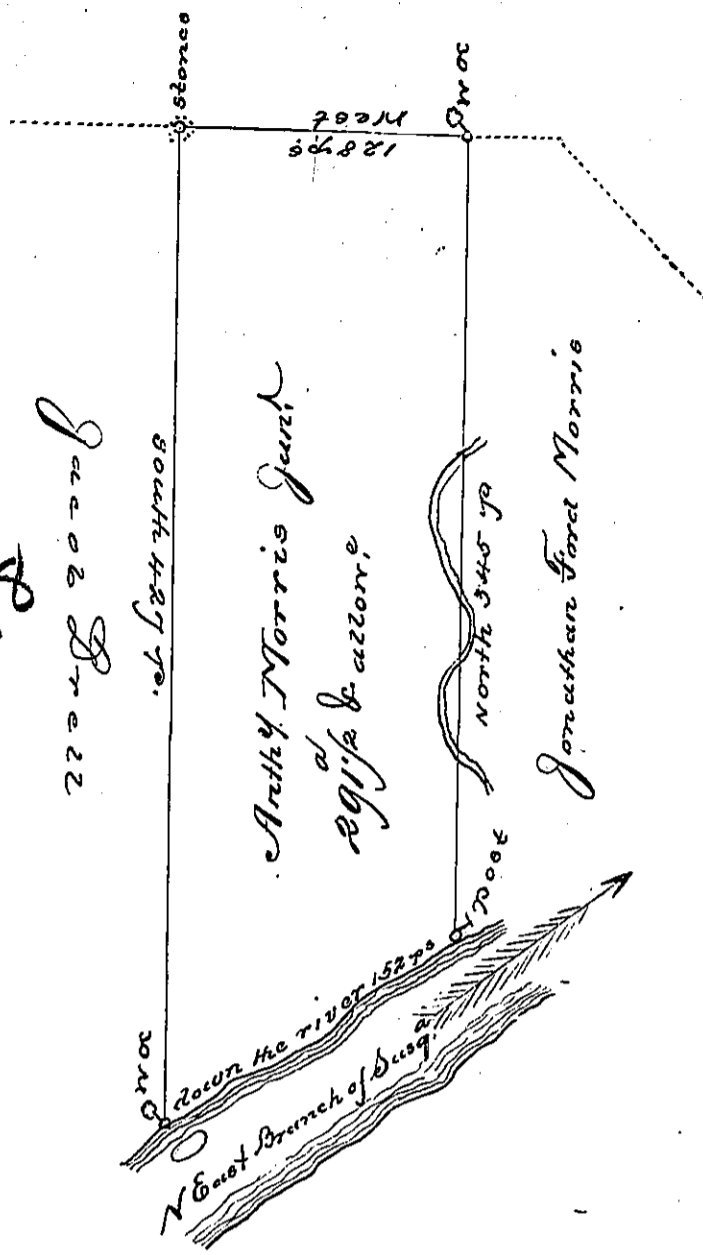 stones
West
128 ps
W O
Jacob Grell
South 427 p.
Anth.y Morris Jun.r
291 1/2 a & allow.e
North 345 p
Jonathan Ford Morris
Post
W O
down the river 152 ps
N East Branch of Susq.a